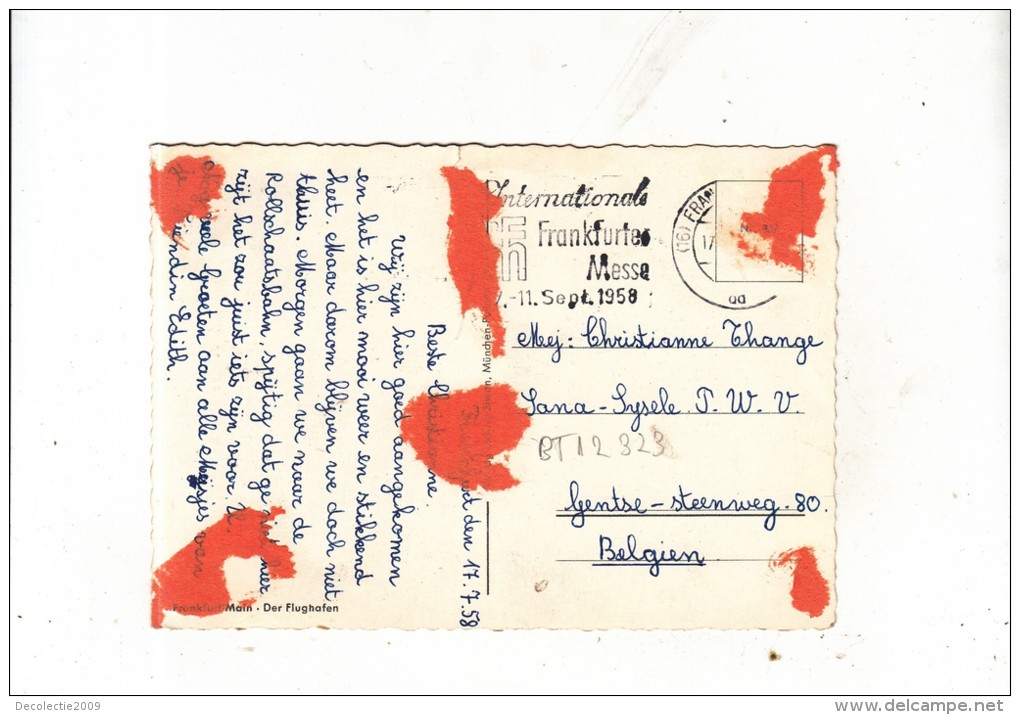 Internationale
Frankfurter
Messe
7.-11. Sept. 1958
(16) FRAN
17
ad
Mej: Christianne Thange
Sana-Sysele P. W. V.
BT12 323
Gentse-steenweg. 80.
Belgien
den 17.7.58
Beste Christianne.
Wij zijn hier goed aangekomen
en het is hier mooi weer en stikkend
heet. Maar darom blijven we doch niet
thuis. Morgen gaan we naar de
Rollschaatsbahn, spijtig dat ge niet hier
zijt het zou juist iets zijn voor U.
veele Groeten aan alle Meisjes van
Edith.
Frankfurt Main · Der Flughafen
München
Decolectie2009
www.delcampe.net